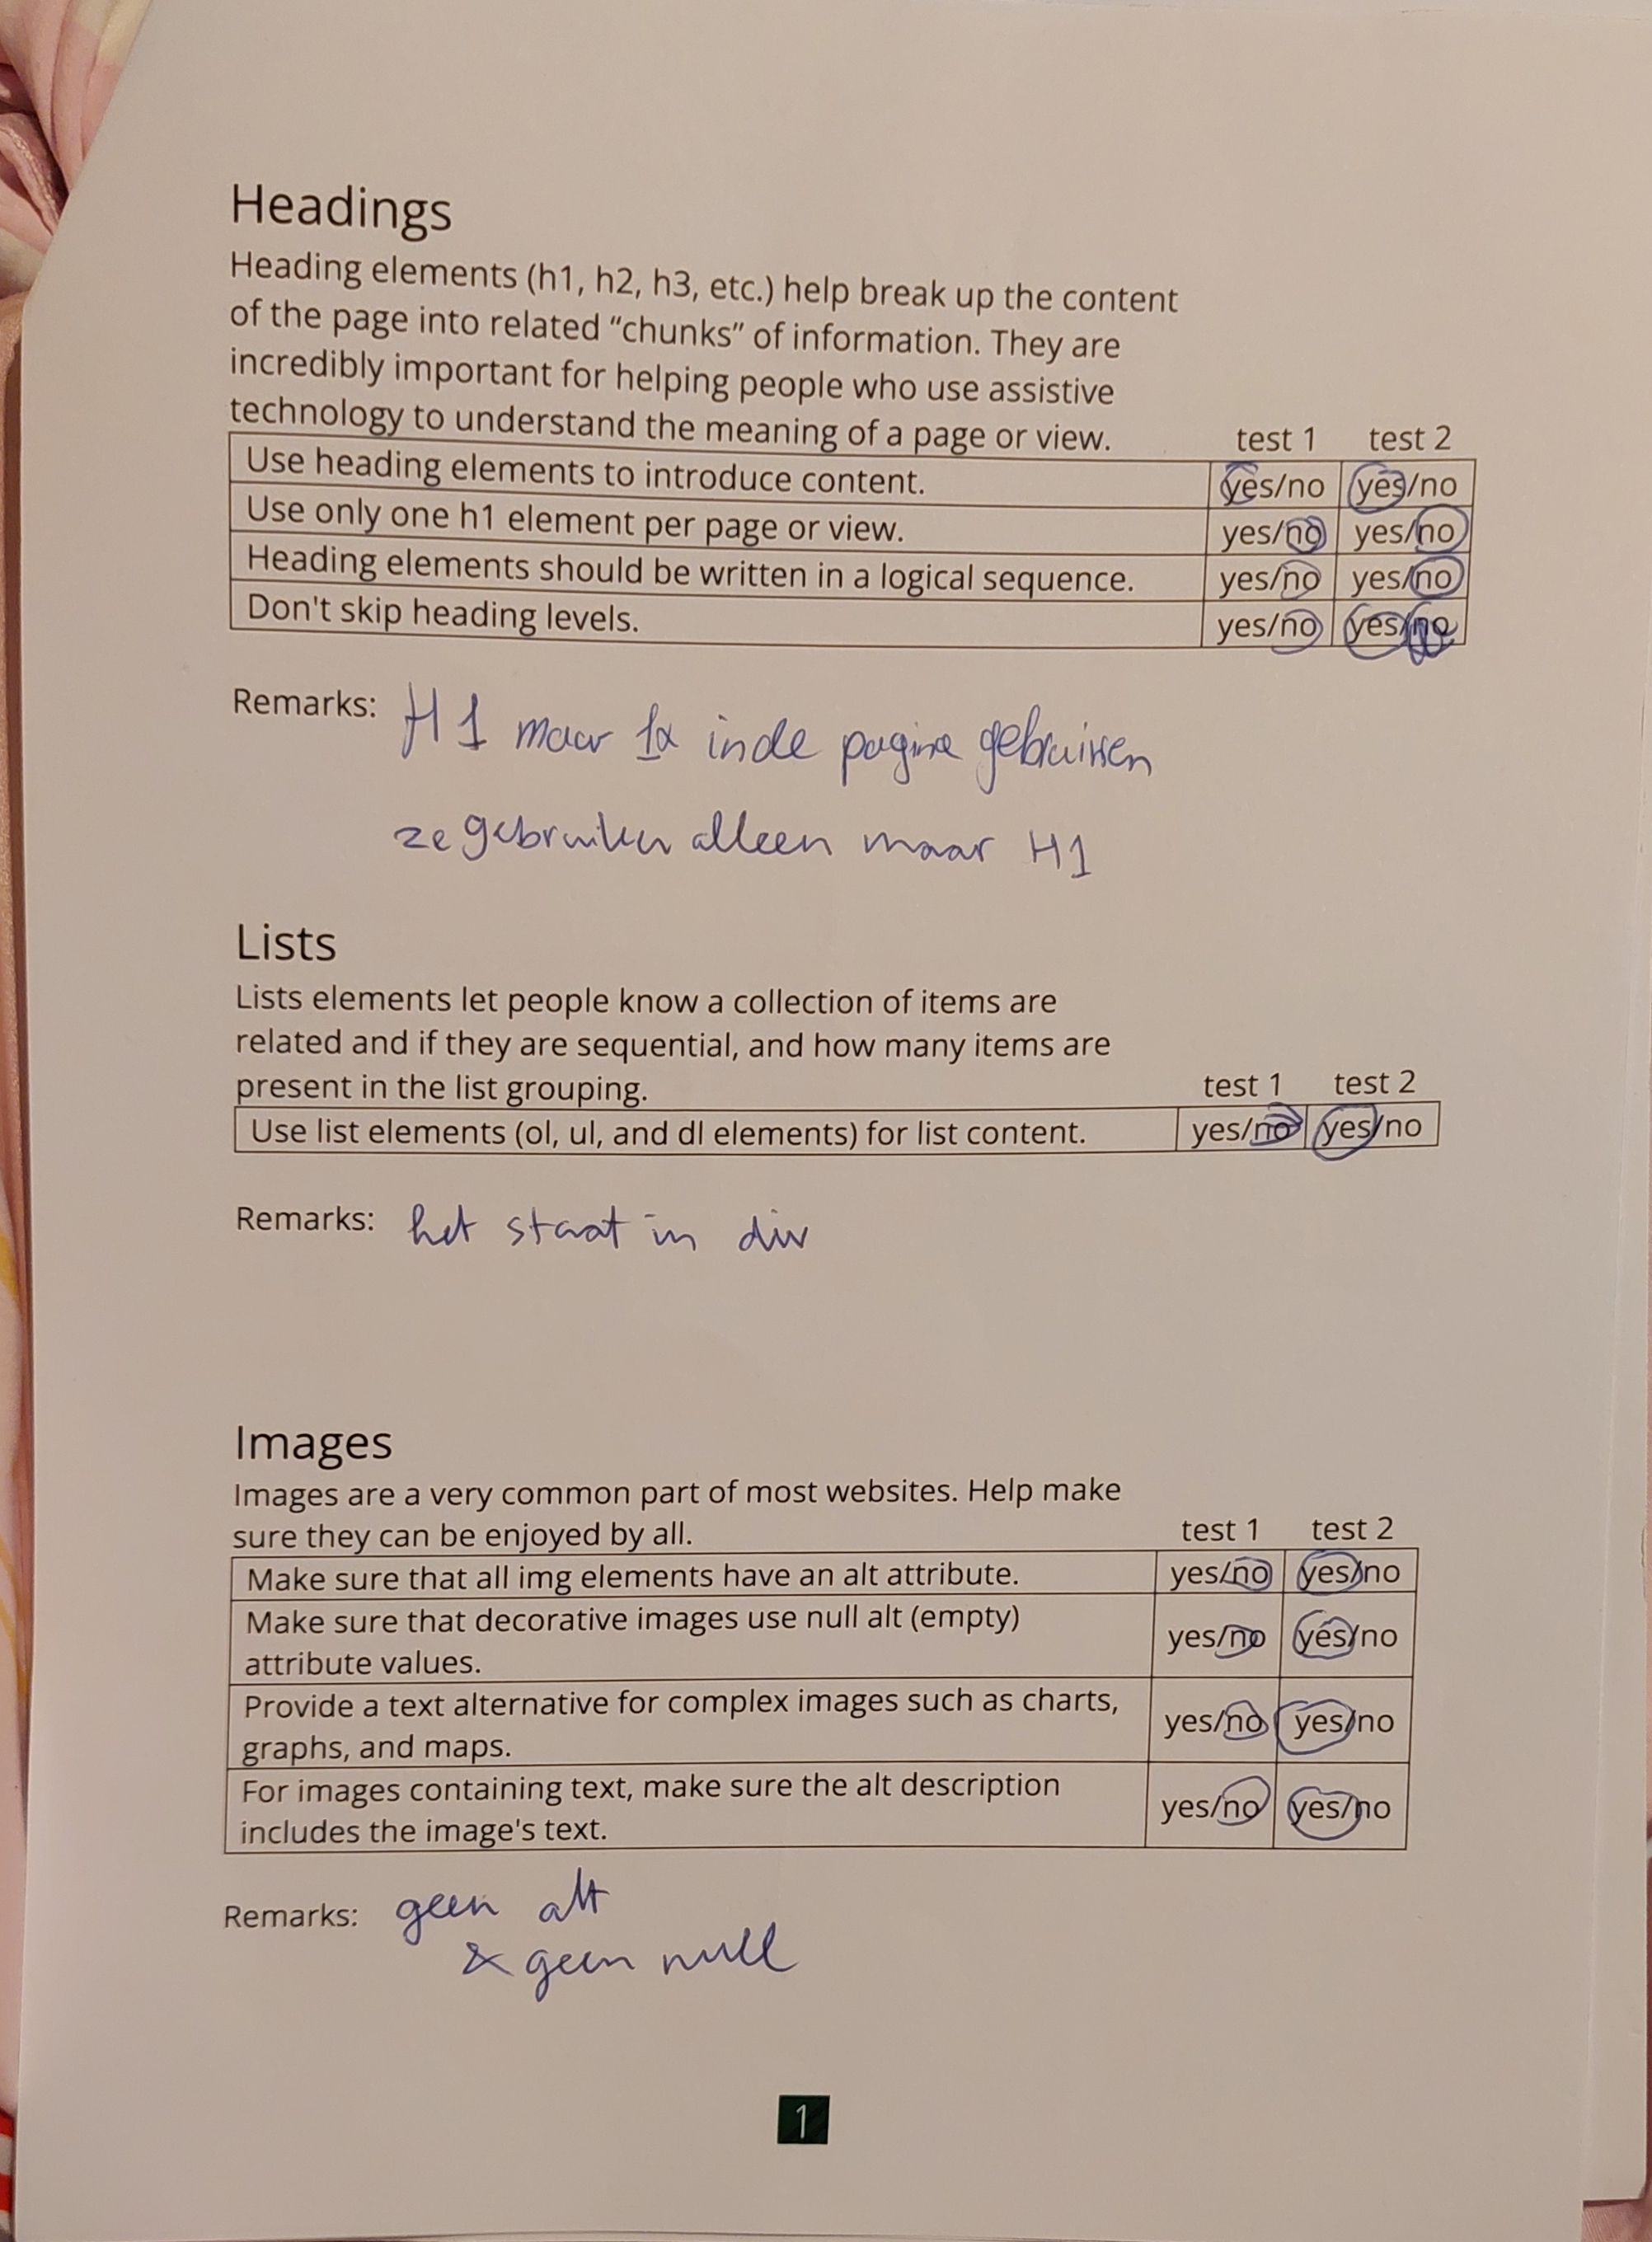 Headings
Heading elements (h1, h2, h3, etc.) help break up the content
of the page into related “chunks” of information. They are
incredibly important for helping people who use assistive
technology to understand the meaning of a page or view. test 1 test 2
Use heading elements to introduce content. yes/no yes/no
Use only one h1 element per page or view. yes/no yes/no
Heading elements should be written in a logical sequence. yes/no yes/no
Don't skip heading levels. yes/no yes/no
Remarks: H1 maar 1x in de pagina gebruiken
ze gebruiken alleen maar H1
Lists
Lists elements let people know a collection of items are
related and if they are sequential, and how many items are
present in the list grouping. test 1 test 2
Use list elements (ol, ul, and dl elements) for list content. yes/no yes/no
Remarks: het staat in div
Images
Images are a very common part of most websites. Help make
sure they can be enjoyed by all. test 1 test 2
Make sure that all img elements have an alt attribute. yes/no yes/no
Make sure that decorative images use null alt (empty)
attribute values. yes/no yes/no
Provide a text alternative for complex images such as charts,
graphs, and maps. yes/no yes/no
For images containing text, make sure the alt description
includes the image's text. yes/no yes/no
Remarks: geen alt
& geen null
1